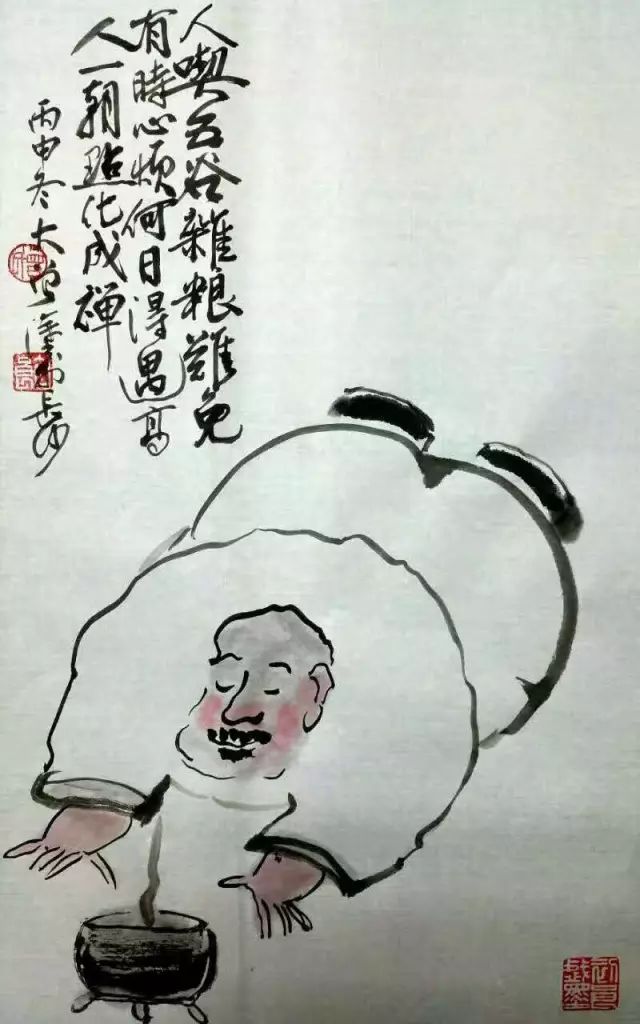 人喫五谷雜粮難免
有時心煩何日得遇高
人一朝點化成禪
丙申冬大